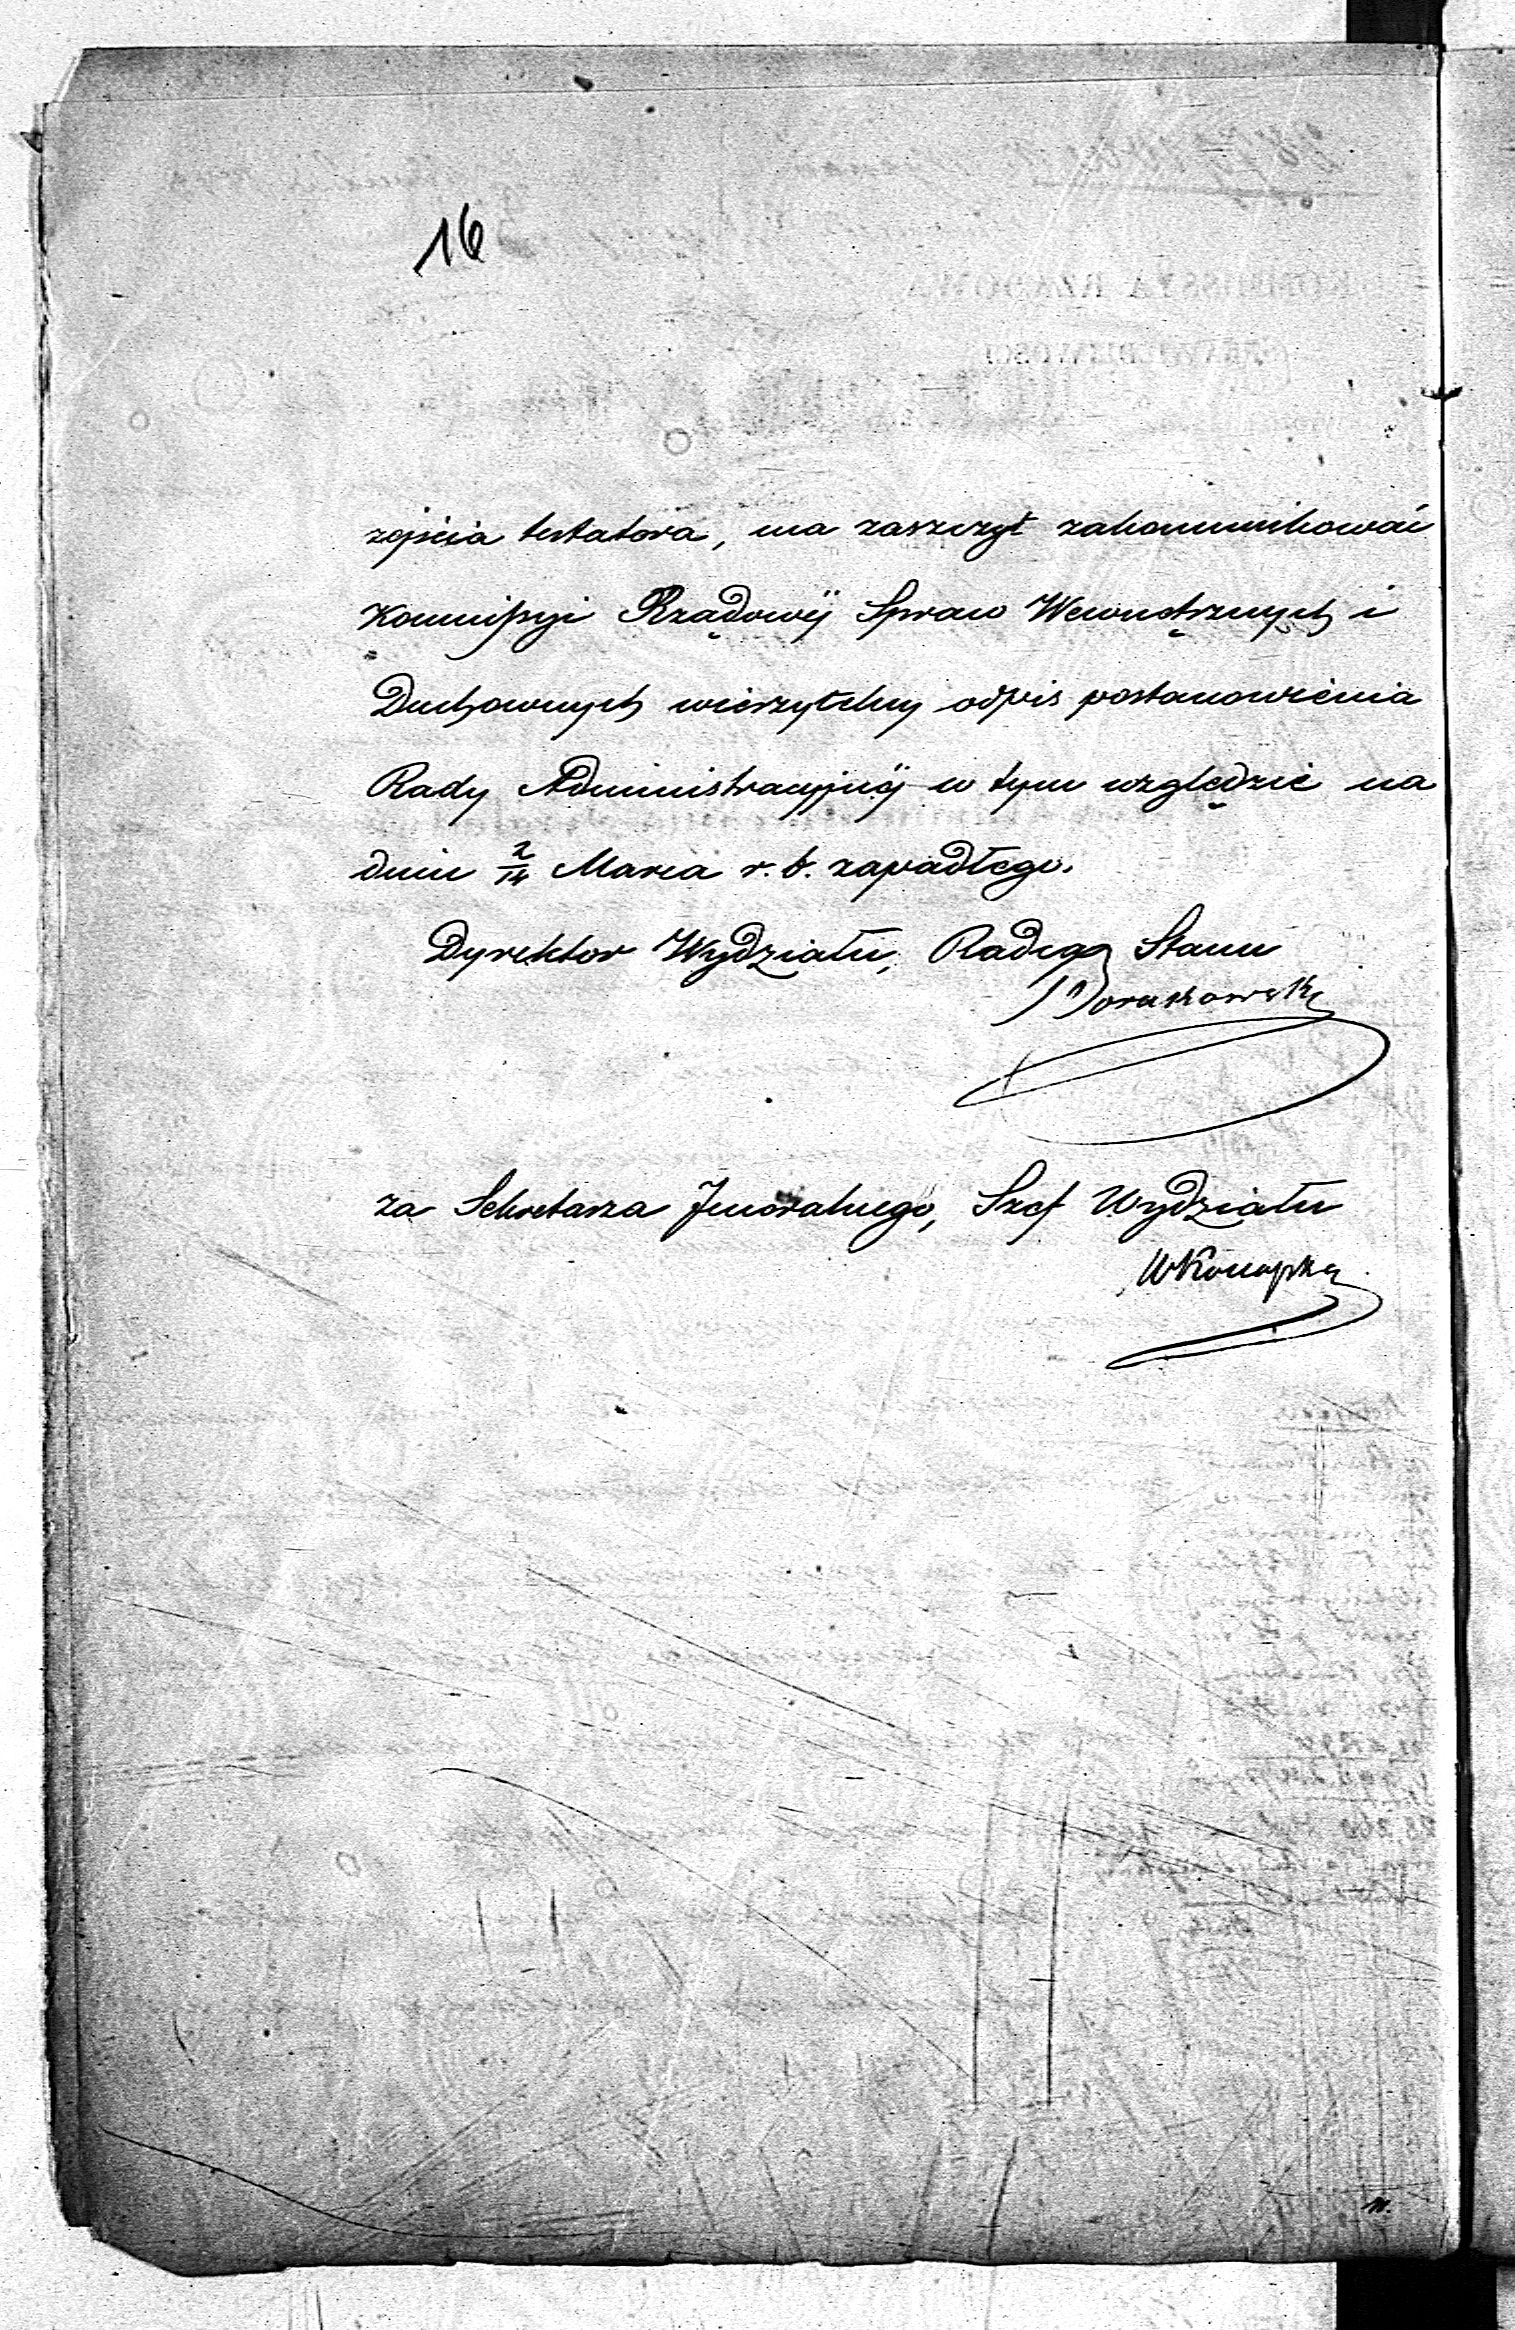 16
zejścia testatora, ma zaszczyt zakommunikować
Kommissyi Rządowéj Spraw Wewnętrznych i
Duchownych wierzytelny odpis postanowienia
Rady Administracyjnéj w tym względzie na
dniu 2/14 Marca r. b. zapadłego.
Dyrektor Wydziału, Radca Stanu
za Sekretarza Jeneralnego, Szef Wydziału
WKonopka